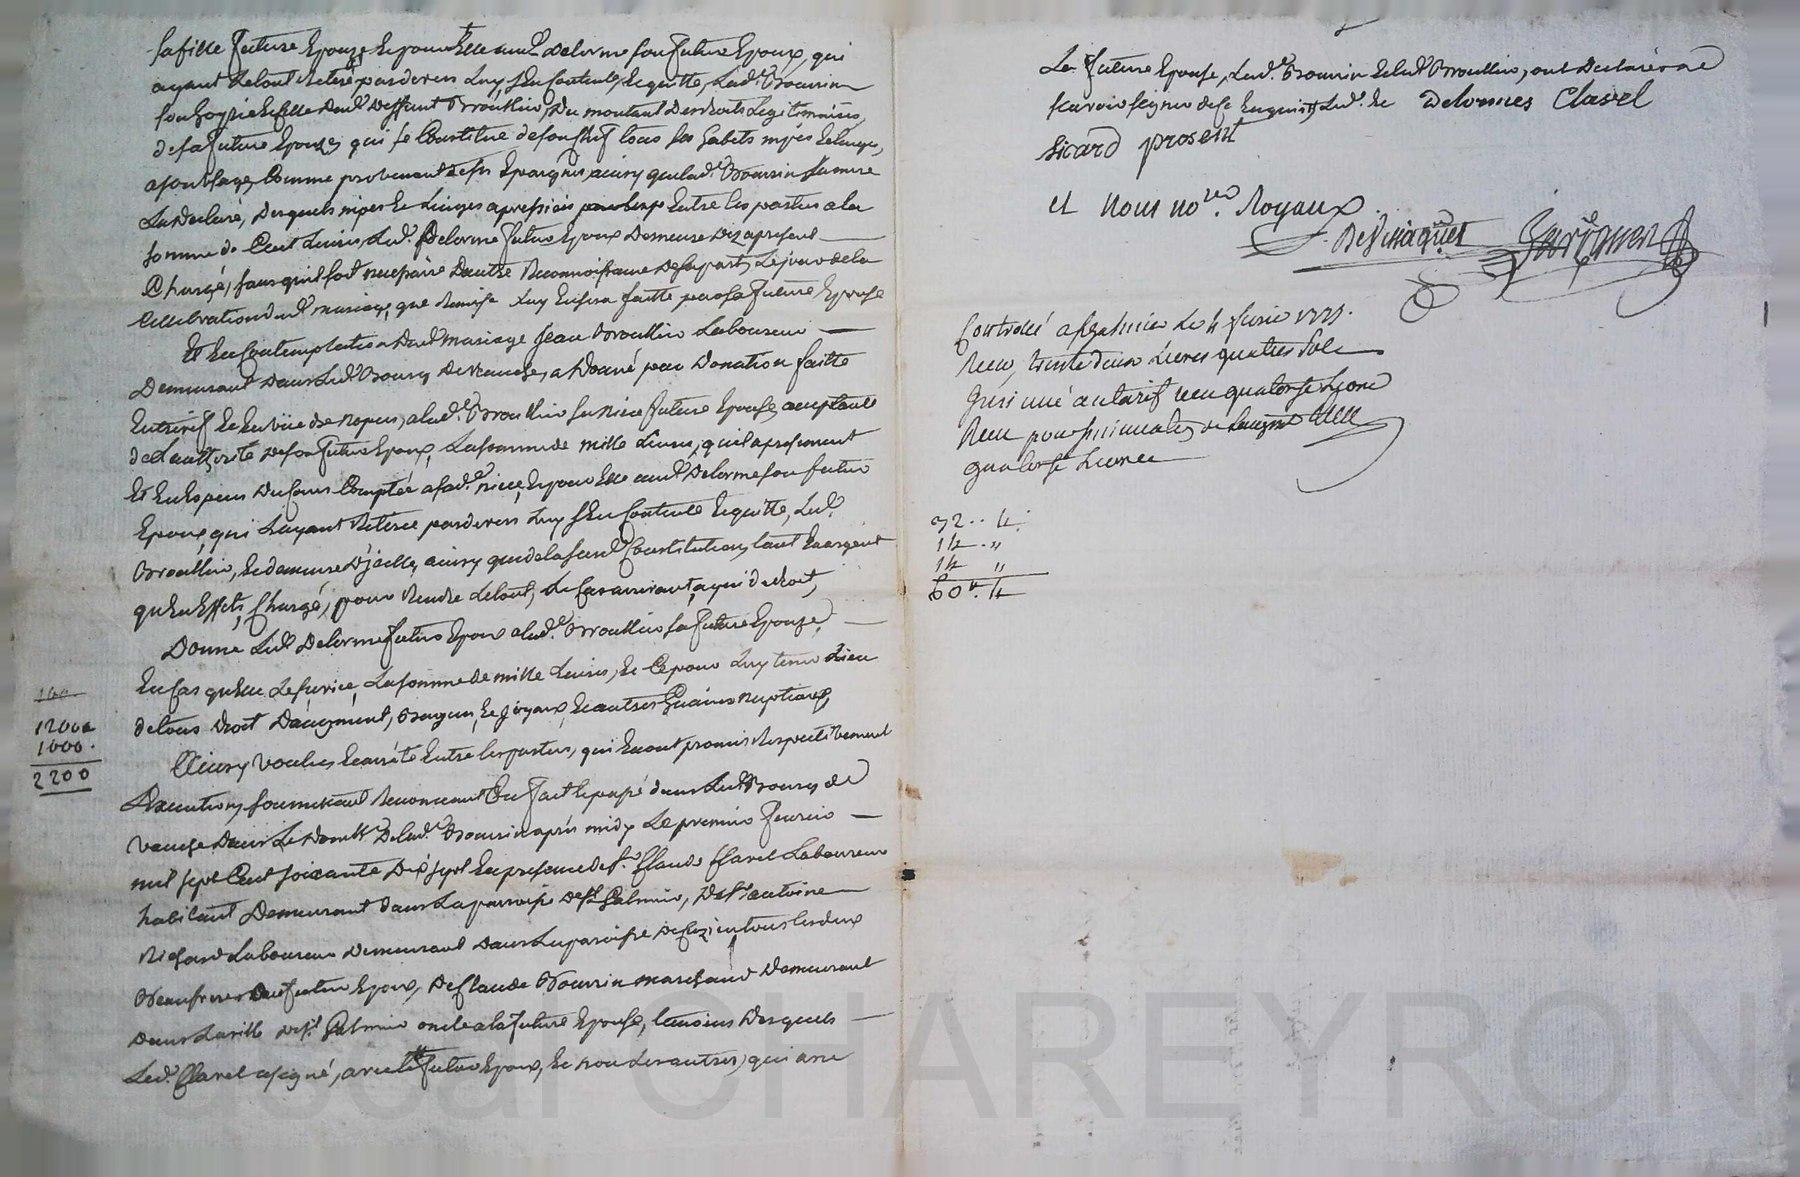 sa fille future Epouze, Et pour Elle aud. Delorme son futur Epoux, qui
ayant Le tout Retiré pardevers Luy, s'En Contente, Et quitte, Lad.e Boursin
dud. Deffunt Brouttin, Du montant Des droits Legitimaires,
de sa future Epouze, qui se Constitue de son chef tous ses habits nipes Et linges,
Comme provenant de ses Epargnes, ainsy que lad.e Boursin sa mere
L'a Declaré, Desquels nipes Et Linges apressiés Entre les parties a la
somme de Cent Livres, Led. Delorme futur Epoux Demeure Dez apresent
Chargé, sans qu'il soit necessaire D'autre Reconnoissance De sa part, Le jour de la
Celebration dud. mariage, que Remise Luy En sera faitte par sa future Epouse
Et En Contemplation Dud. mariage Jean Brouttin Laboureur
Demeurant Dans Led. Bourg De Veauche, a Donné par Donation faitte
Entrevif Et En vüe de nopces, a lad.e Brouttin sa niéce future Epouse, acceptante
de L'authorité De son futur Epoux, La somme de mille Livres, qu'il a presentement
Et En Espèces Du Cours Comptée a sad.e niéce, Et pour Elle aud. Delorme son futur
Epoux, qui L'ayant Retirée pardevers Luy s'En Contente Et quitte, Led.
Brouttin, Et demeure D'icelle, ainsy que de la susd. Constitution, tant En argent
qu'En Effets, Chargé, pour Rendre Le tout, Le Cas arrivant, a qui de droit,
Donne Led. Delorme futur Epoux a lad.e Brouttin sa future Epouze,
En Cas qu'Elle Le survive, La somme de mille Livres, Et Ce pour Luy tenir Lieu
de tous Droit D'augment, Bagues, Et joyaux, Et autres Guains nuptiaux,
Ainsy voulu Et arrêté Entre les parties, qui En ont promis Respectivement
L'Execution, soumettant Renonceant &c. fait Et passé dans Led. Bourg de
Veauche Dans Le Domlle. De lad.e Boursin après midy Le premier Fevrier
mil sept Cent soixante Dix sept En presence de S.r Claude Clavel Laboureur
habitant Demeurant dans La parroisse de S.t Galmier, De S.r antoine
Richard Laboureur Demeurant Dans La paroisse De tous les deux
Beaufreres Dud. futur Epoux, De Claude Boursin marchand Demeurant
Dans La ville de S.t Galmier oncle a la future Epouse, temoins Desquels
Led. Clavel a signé, avec le futur Epoux, Et non Les autres, qui avec
140
1200
1000.
2200
La future Epouse, Lad.e Boursin Et Led. Brouttin, ont Declaré ne
scavoir signer de ce Enquis Delormes Clavel
sicard present
et nous no.res Royaux
Controllé a S.t Galmier Le 4 fevrier 1777.
Recu, trente deux Livres quatres sols
Jnsinué au tarif recu quatorse Livres
Recu pour
quatorse Livres
32 .. 4.
14 .. "
14 "
60tt. 4
Pascal CHAREYRON